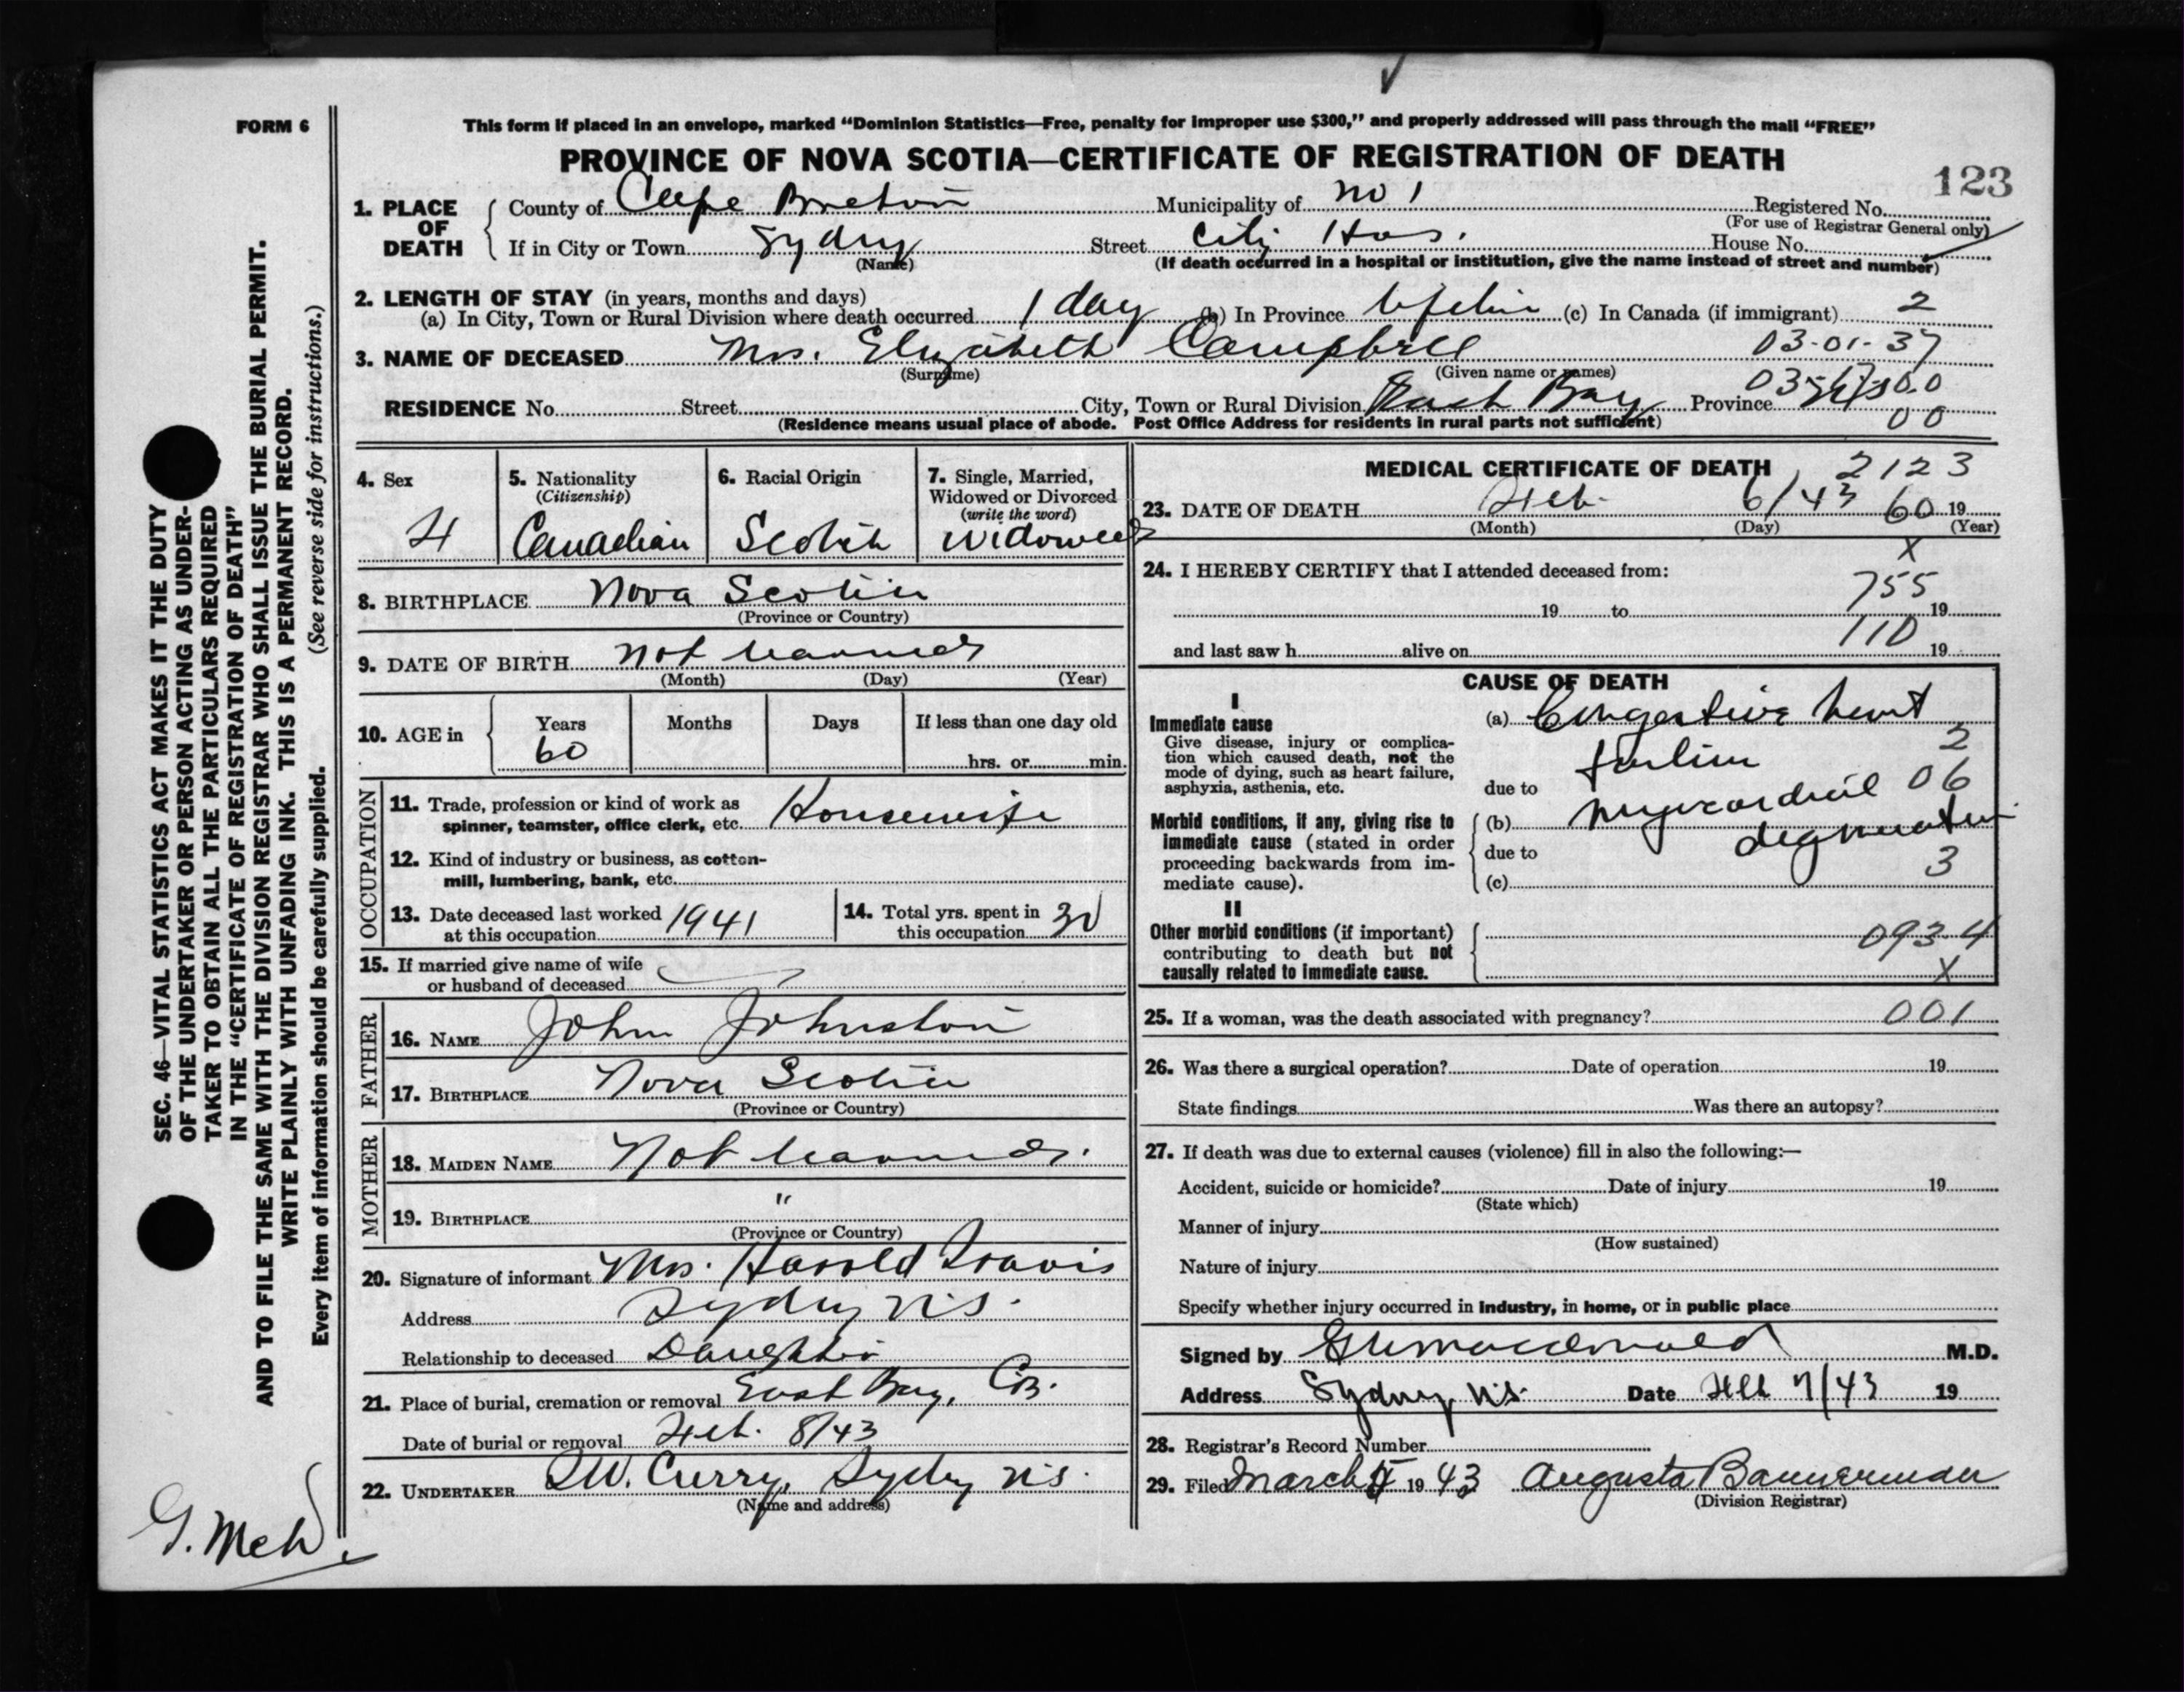 FORM 6
This form if placed in an envelope, marked “Dominion Statistics—Free, penalty for improper use $300,” and properly addressed will pass through the mail “FREE”
PROVINCE OF NOVA SCOTIA—CERTIFICATE OF REGISTRATION OF DEATH
123
1. PLACE OF DEATH
County of Cape Breton Municipality of No 1 Registered No.
(For use of Registrar General only)
If in City or Town Sydney Street City Hos. House No.
(Name) (If death occurred in a hospital or institution, give the name instead of street and number)
2. LENGTH OF STAY (in years, months and days)
(a) In City, Town or Rural Division where death occurred 1 day (b) In Province Lifetime (c) In Canada (if immigrant) 2
3. NAME OF DECEASED Mrs. Elizabeth Campbell 03-01-37
(Surname) (Given name or names)
RESIDENCE No. Street City, Town or Rural Division East Bay Province
(Residence means usual place of abode. Post Office Address for residents in rural parts not sufficient) 00
4. Sex
F
5. Nationality
(Citizenship)
Canadian
6. Racial Origin
Scotch
7. Single, Married,
Widowed or Divorced
(write the word)
Widowed
8. BIRTHPLACE Nova Scotia
(Province or Country)
9. DATE OF BIRTH Not learned
(Month) (Day) (Year)
10. AGE in
Years Months Days If less than one day old
60
hrs. or min.
OCCUPATION
11. Trade, profession or kind of work as
spinner, teamster, office clerk, etc. Housewife
12. Kind of industry or business, as cotton-
mill, lumbering, bank, etc.
13. Date deceased last worked
at this occupation 1941
14. Total yrs. spent in
this occupation 30
15. If married give name of wife
or husband of deceased
FATHER
16. NAME John Johnston
17. BIRTHPLACE Nova Scotia
(Province or Country)
MOTHER
18. MAIDEN NAME Not learned.
19. BIRTHPLACE "
(Province or Country)
20. Signature of informant Mrs. Harold Travis
Address Sydney N.S.
Relationship to deceased Daughter
21. Place of burial, cremation or removal East Bay, C.B.
Date of burial or removal Feb. 8/43
22. UNDERTAKER Curry, Sydney N.S.
(Name and address)
MEDICAL CERTIFICATE OF DEATH 2123
23. DATE OF DEATH Feb 6/43 60 19
(Month) (Day) (Year)
X
24. I HEREBY CERTIFY that I attended deceased from:
755
19 to 19
110
and last saw h alive on 19
CAUSE OF DEATH
I
Immediate cause
Give disease, injury or complica-
tion which caused death, not the
mode of dying, such as heart failure,
asphyxia, asthenia, etc.
(a) Congestive heart
failure 2
due to 06
Morbid conditions, if any, giving rise to
immediate cause (stated in order
proceeding backwards from im-
mediate cause).
(b) Myocardial
degeneration
due to
3
(c)
II
Other morbid conditions (if important)
contributing to death but not
causally related to immediate cause.
093-4
X
25. If a woman, was the death associated with pregnancy? 001
26. Was there a surgical operation? Date of operation 19
State findings Was there an autopsy?
27. If death was due to external causes (violence) fill in also the following:—
Accident, suicide or homicide? Date of injury 19
(State which)
Manner of injury
(How sustained)
Nature of injury
Specify whether injury occurred in industry, in home, or in public place
Signed by MacDonald M.D.
Address Sydney, N.S. Date Feb 7/43 19
28. Registrar's Record Number
29. Filed March 1943 Augusta Bannerman
(Division Registrar)
SEC. 46—VITAL STATISTICS ACT MAKES IT THE DUTY
OF THE UNDERTAKER OR PERSON ACTING AS UNDER-
TAKER TO OBTAIN ALL THE PARTICULARS REQUIRED
IN THE “CERTIFICATE OF REGISTRATION OF DEATH”
AND TO FILE THE SAME WITH THE DIVISION REGISTRAR WHO SHALL ISSUE THE BURIAL PERMIT.
WRITE PLAINLY WITH UNFADING INK. THIS IS A PERMANENT RECORD.
Every item of information should be carefully supplied. (See reverse side for instructions.)